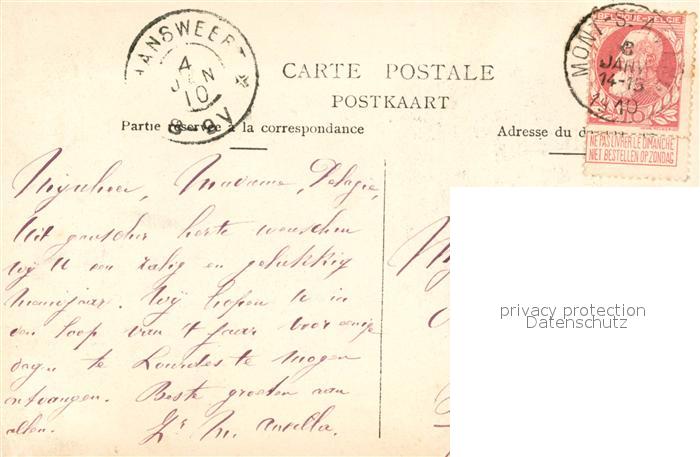 HANSWEERT
4
JAN
10
8-9V
CARTE POSTALE
POSTKAART
Partie réservée à la correspondance
Adresse du
BELGIQUE-BELGIE
MONT-S-A
8
JANV
14-15
1910
NE PAS LIVRER LE DIMANCHE
NIET BESTELLEN OP ZONDAG
Mijnheer, Madame, Pelagie,
Uit ganscher herte wenschen
wij U een zalig en gelukkig
Wij hopen U in
den loop van 't jaar voor eenige
dagen te Lourdes te mogen
ontvangen. Beste groeten aan
allen. Zr M. Ancilla.
privacy protection
Datenschutz